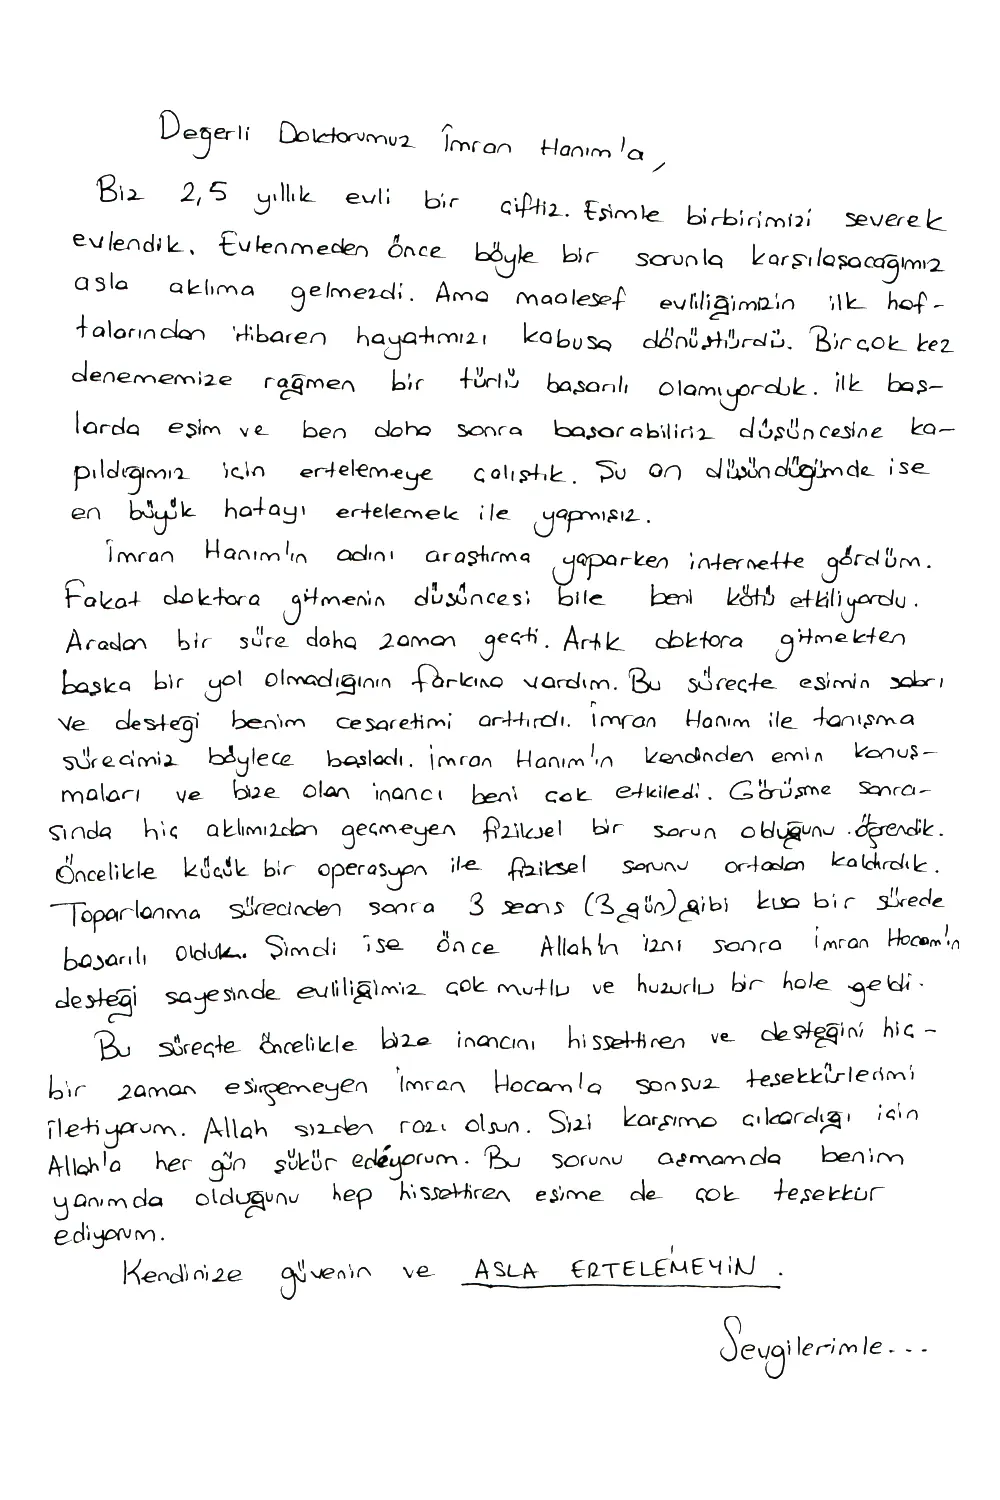 Değerli Doktorumuz İmran Hanım'a,
Biz 2,5 yıllık evli bir çiftiz. Eşimle birbirimizi severek
evlendik. Evlenmeden önce böyle bir sorunla karşılaşacağımız
asla aklıma gelmezdi. Ama maalesef evliliğimizin ilk haf-
talarından itibaren hayatımızı kabusa dönüştürdü. Birçok kez
denememize rağmen bir türlü başarılı olamıyorduk. ilk baş-
larda eşim ve ben daha sonra başarabiliriz düşüncesine ka-
pıldığımız için ertelemeye çalıştık. Şu an düşündüğümde ise
en büyük hatayı ertelemek ile yapmışız.
İmran Hanım'ın adını araştırma yaparken internette gördüm.
Fakat doktora gitmenin düşüncesi bile beni kötü etkiliyordu.
Aradan bir süre daha zaman geçti. Artık doktora gitmekten
başka bir yol olmadığının farkına vardım. Bu süreçte eşimin sabrı
ve desteği benim cesaretimi arttırdı. İmran Hanım ile tanışma
sürecimiz böylece başladı. İmran Hanım'ın kendinden emin konuş-
maları ve bize olan inancı beni çok etkiledi. Görüşme sonra-
sında hiç aklımızdan geçmeyen fiziksel bir sorun olduğunu öğrendik.
Öncelikle küçük bir operasyon ile fiziksel sorunu ortadan kaldırdık.
Toparlanma sürecinden sonra 3 seans (3 gün) gibi kısa bir sürede
başarılı olduk. Şimdi ise önce Allah'ın izni sonra İmran Hocam'ın
desteği sayesinde evliliğimiz çok mutlu ve huzurlu bir hale geldi.
Bu süreçte öncelikle bize inancını hissettiren ve desteğini hiç-
bir zaman esirgemeyen İmran Hocam'a sonsuz teşekkürlerimi
iletiyorum. Allah sizden razı olsun. Sizi karşıma çıkardığı için
Allah'a her gün şükür ediyorum. Bu sorunu aşmamda benim
yanımda olduğunu hep hissettiren eşime de çok teşekkür
ediyorum.
Kendinize güvenin ve ASLA ERTELEMEYİN.
Sevgilerimle...